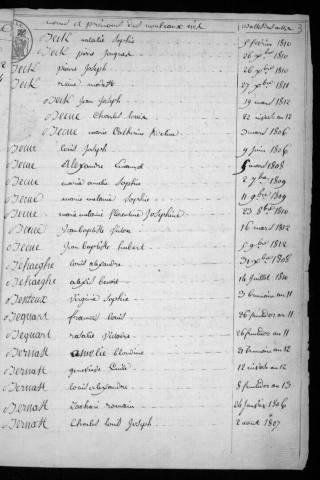 noms et prénoms des nouveaux nés dattes des actes 3
Beck natalie Sophie 5 février 1810
Beck pierre jacques 26 Xbre 1810
Beck pierre Joseph 26 Xbre 1810
Beck reine modeste 27 Xbre 1811
Beck jean Joseph 19 mars 1812
Becue Charles Louis 22 nivôse an 12
Becue marie Catherine 3 mars 1806
Becue Louis Joseph 9 juin 1806
Becue Alexandre 5 mars 1808
Becue marie amelie Sophie 2 7bre 1809
Becue marie melanie Sophie 11 9bre 1809
Becue marie melanie florentine Josephine 23 8bre 1810
Becue Jean baptiste 16 mars 1812
Becue Jean baptiste hubert 5 9bre 1812
Behaeghe Louis alexandre 31 Xbre 1808
Behaeghe alexis benoit 14 juillet 1810
Benteux Virginie Sophie 3 brumaire an 11
Bequart francois Louis 26 fructidor an 11
Bequart natalie Victoire 26 fructidor an 11
Bernast amelie Claudine 21 brumaire an 12
Bernast genevieve 12 nivôse an 12
Bernast Louis alexandre 8 fructidor an 13
Bernast Zacharie romain 24 janvier 1806
Bernast Charles Louis Joseph 2 août 1807